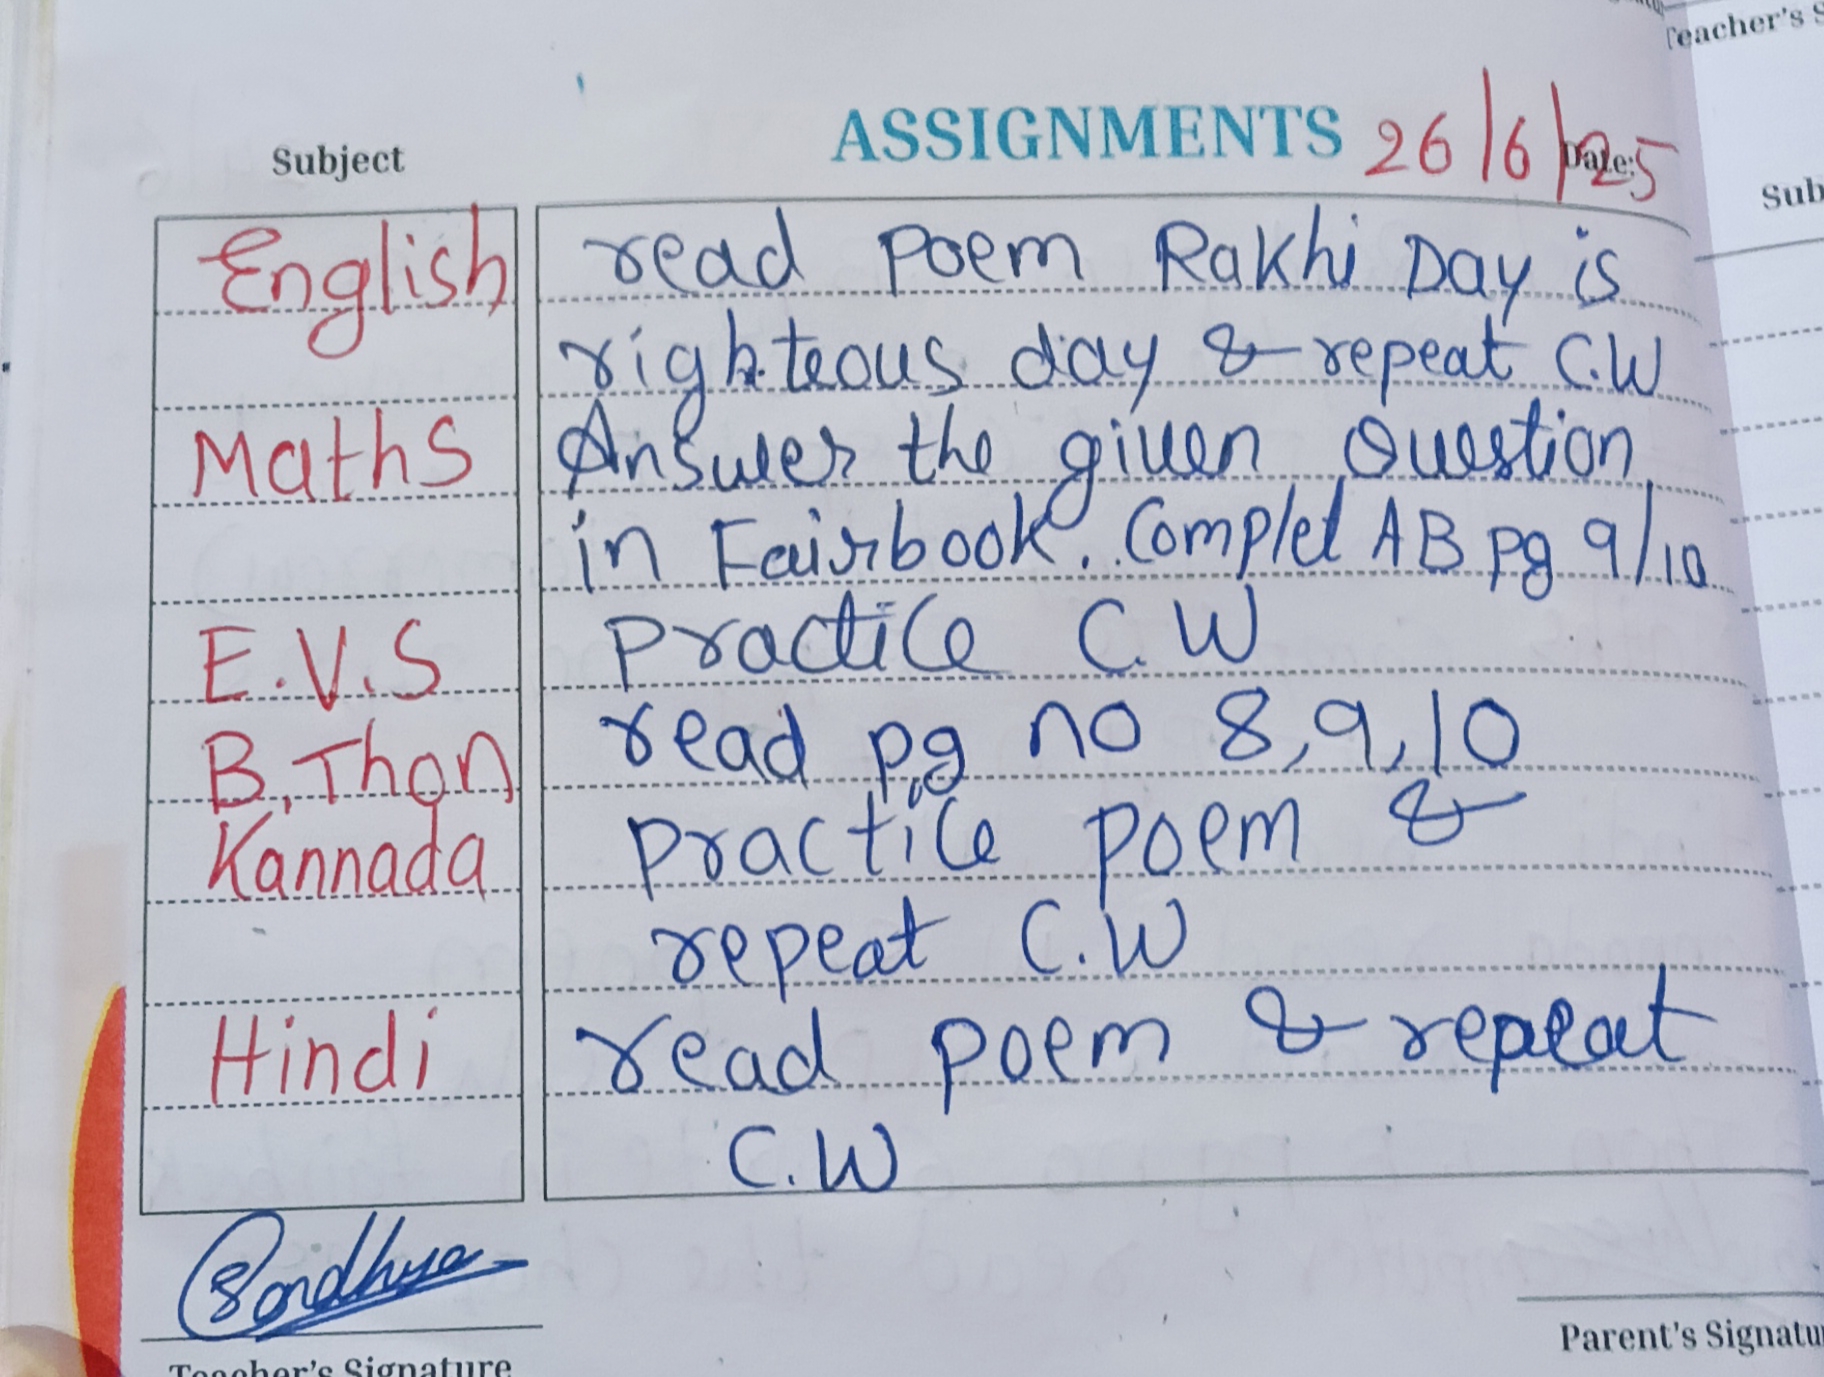 Teacher's S
Subject
ASSIGNMENTS 26/6/25
Date:
Sub
English read poem Rakhi Day is
righteous day & repeat C.W
Maths Answer the given Question
in Fairbook. Complet AB pg 9/10
E.V.S practice C.W
B.Thon read pg no 8,9,10
Kannada practice poem &
repeat C.W
Hindi read poem & repeat
C.W
Sandhya
Teacher's Signature
Parent's Signatu